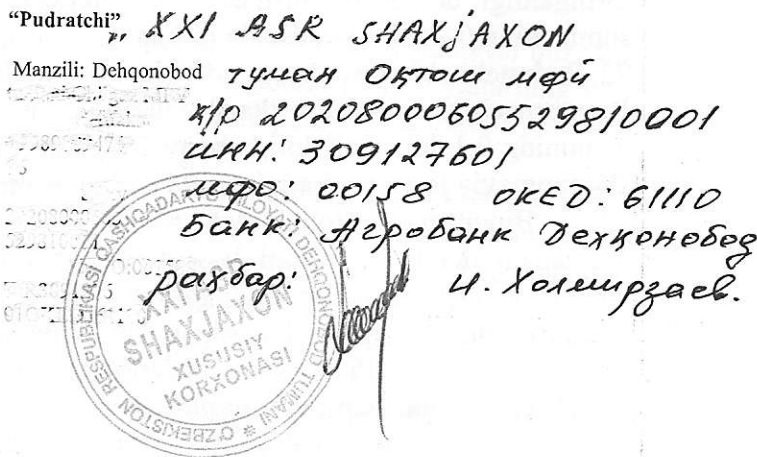 “Pudratchi” „ XXI ASR SHAXJAXON
Manzili: Dehqonobod туман Оқтош мфй
х/р 20208000605529810001
ИНН: 309127601
мфо: 00158 OKED: 61110
Банк: Агробанк Дехқонобод
рахбар: И. Холмирзаев.
O'ZBEKISTON RESPUBLIKASI QASHQADARYO VILOYATI DEHQONOBOD TUMANI
XXI ASR
SHAXJAXON
XUSUSIY
KORXONASI